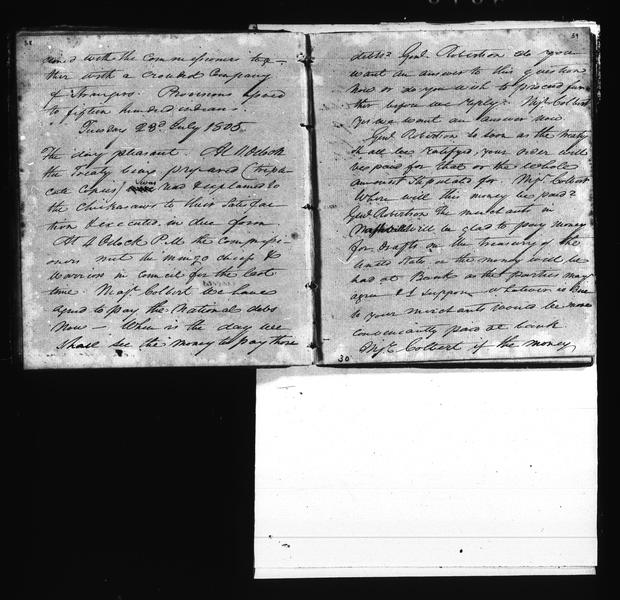 58
dined with the Commissioners toge-
ther with a crouded Company
of Strangers. Provisions issued
to fifteen hundred indians.
Tuesday 23d July 1805
The day pleasant. At 11 Oclock
the Treaty being prepared (tripli-
cate copies) was read & explained to
the Chickasaws to their satisfac-
tion & executed in due form
At 4 Oclock P.M. the Commissi-
oners met the mingo chiefs &
warriors in council for the last
time Majr Colbert We have
agreed to pay the National debts
now — When is the day we
shall see the money to pay those
59
debts? Genl. Robertson do you
want an answer to this question
now or do you wish to proceed fur-
ther before we reply? Majr Colbert
yes we want an answer now.
Genl Robertson So soon as the treaty
shall be ratifyed, your order will
be paid for that or the whole
amount stipulated for Majr Colbert
Where will this money be paid?
Genl Robertson The merchants in
will be glad to pay money
for drafts on the treasury of the
United States or the money will be
had at Bank as the parties may
agree & I suppose whatever is due
to your merchants would be more
conveniently paid at bank
Majr Colbert if the money
30